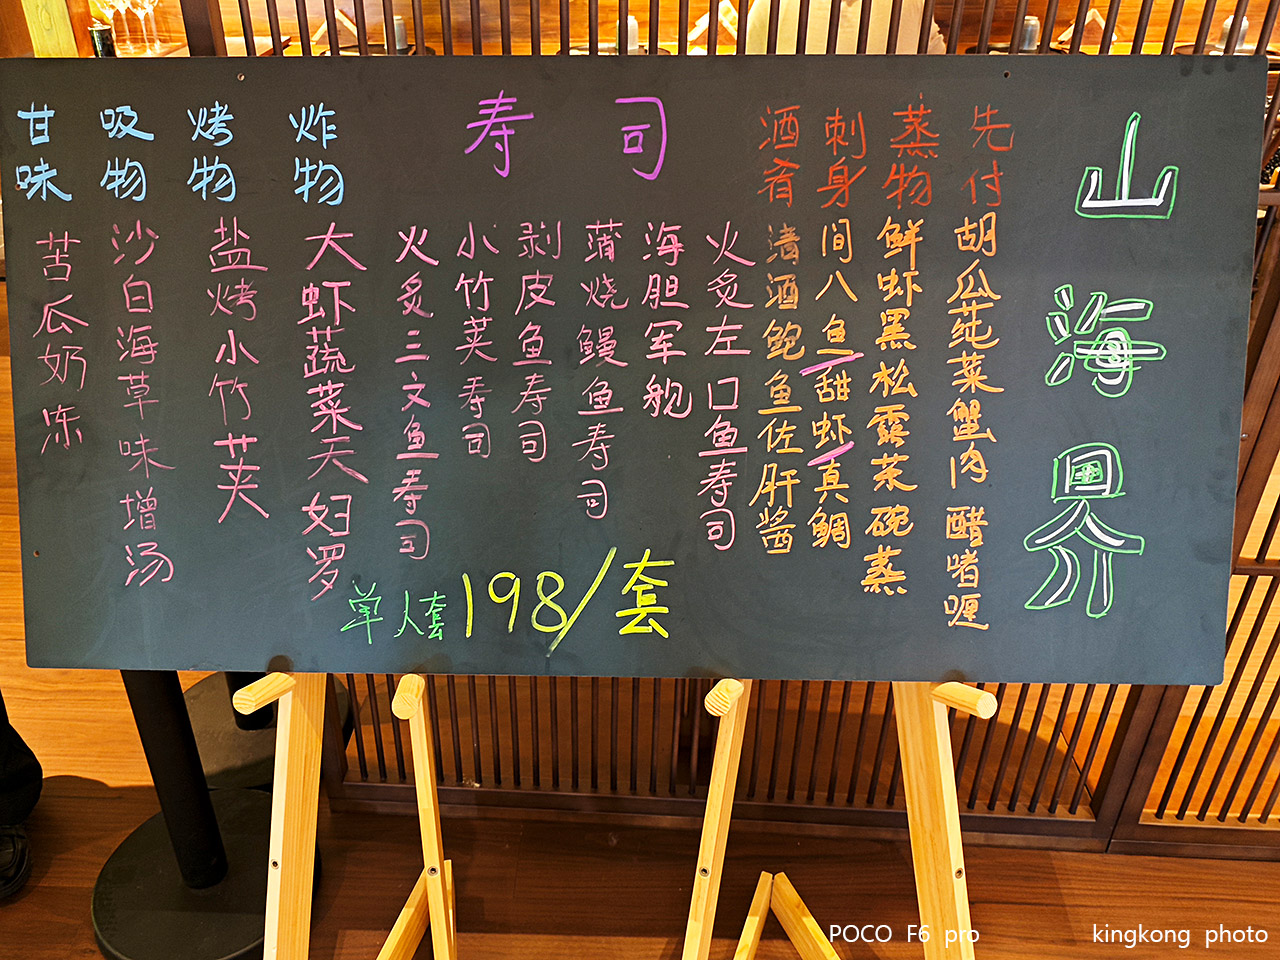 山海界
先付
胡瓜莼菜蟹肉醋啫喱
蒸物
鲜虾黑松露茶碗蒸
刺身
间八鱼/甜虾/真鲷
酒肴
清酒鲍鱼佐肝酱
寿司
火炙左口鱼寿司
海胆军舰
蒲烧鳗鱼寿司
剥皮鱼寿司
小竹荚寿司
火炙三文鱼寿司
炸物
大虾蔬菜天妇罗
烤物
盐烤小竹荚
吸物
沙白海草味增汤
甘味
苦瓜奶冻
单人套198/套
POCO F6 pro
kingkong photo